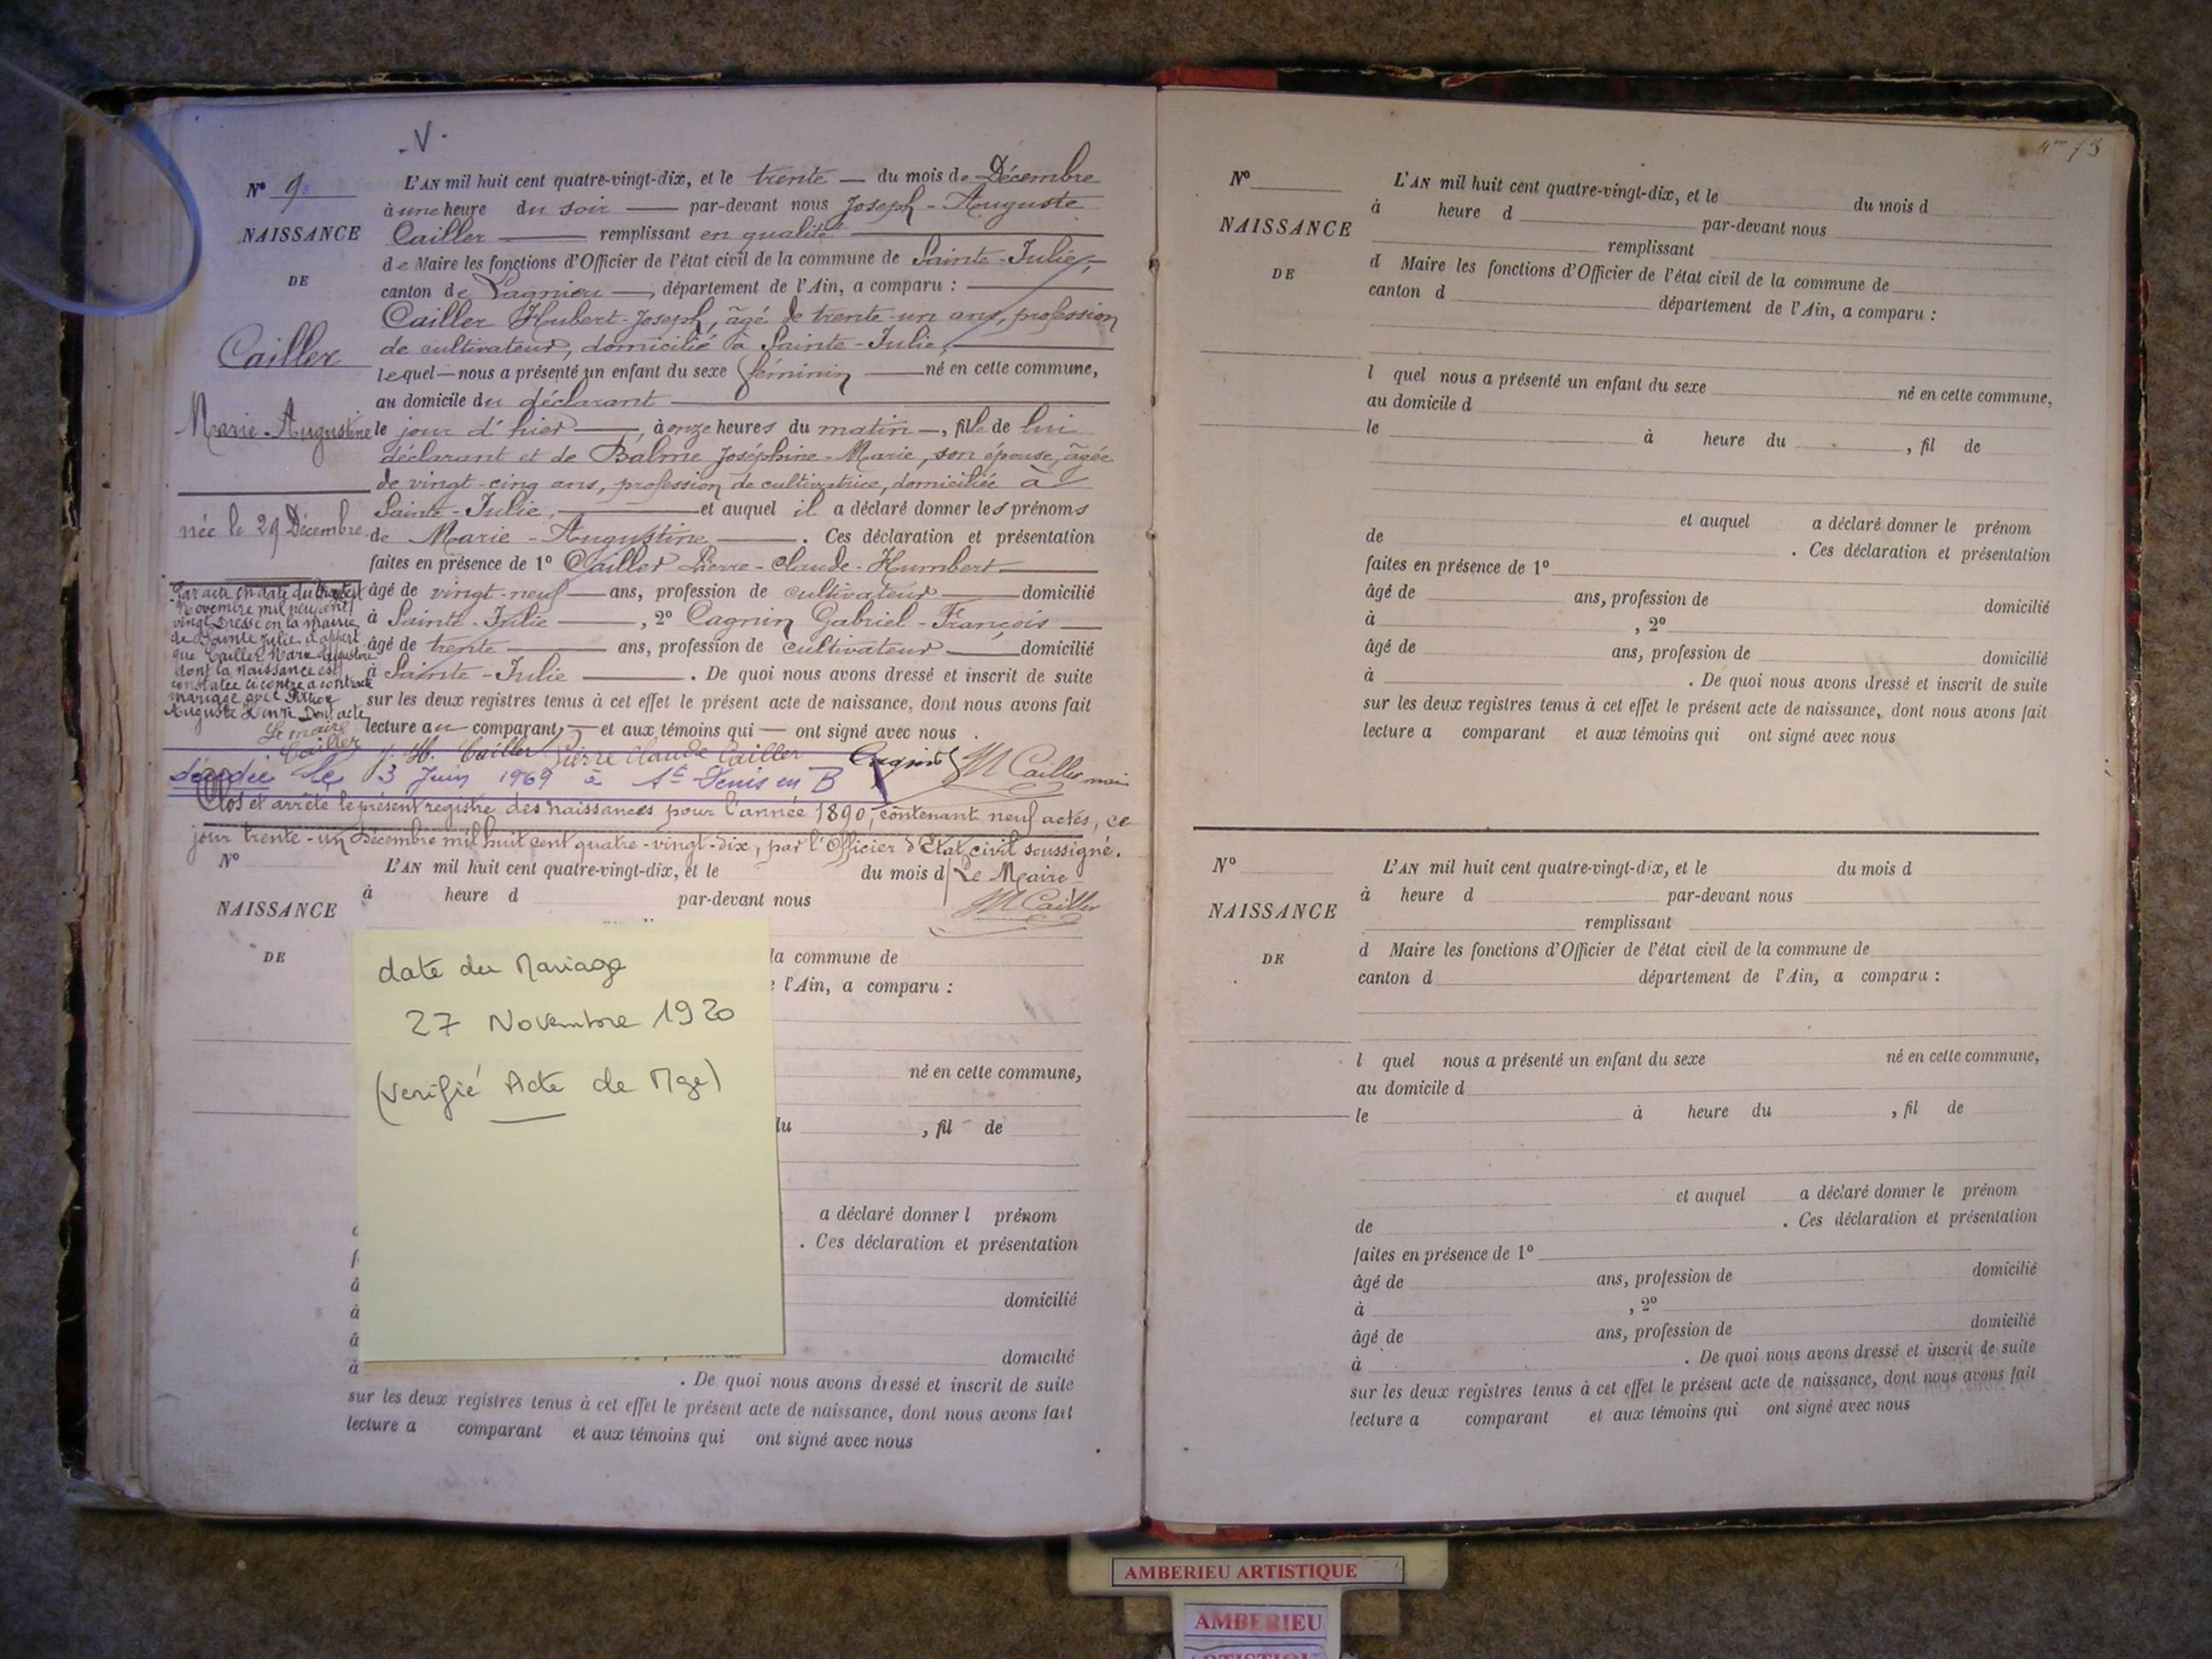 V.
N° 9
NAISSANCE
DE
Cailler
Marie-Augustine
née le 29 Décembre
L'AN mil huit cent quatre-vingt-dix, et le trente du mois de Décembre
à une heure du soir par-devant nous Joseph-Auguste
Cailler remplissant en qualité
de Maire les fonctions d'Officier de l'état civil de la commune de Sainte-Julie,
canton de Lagnieu, département de l'Ain, a comparu :
Cailler Hubert-Joseph, âgé de trente-un ans, profession
de cultivateur, domicilié à Sainte-Julie,
lequel nous a présenté un enfant du sexe féminin né en cette commune,
au domicile du déclarant
le jour d'hier, à onze heures du matin, fille de lui
déclarant et de Balme Joséphine-Marie, son épouse, âgée
de vingt-cinq ans, profession de cultivatrice, domiciliée à
Sainte-Julie, et auquel il a déclaré donner les prénoms
de Marie-Augustine. Ces déclaration et présentation
faites en présence de 1° Cailler Pierre-Claude-Humbert
âgé de vingt-neuf ans, profession de cultivateur domicilié
à Sainte-Julie, 2° Cagnin Gabriel-François
âgé de trente ans, profession de cultivateur domicilié
à Sainte-Julie. De quoi nous avons dressé et inscrit de suite
sur les deux registres tenus à cet effet le présent acte de naissance, dont nous avons fait
lecture au comparant et aux témoins qui ont signé avec nous.
Par acte en date du
Novembre mil neuf cent
vingt dressé en la mairie
de Sainte Julie il appert
que Cailler Marie Augustine
dont la naissance est
constatée ci contre a contracté
mariage avec
Auguste Henri Dont acte
Le maire
Cailler
J. H. Cailler Pierre Claude Cailler Cagnin Cailler maire
décédée le 3 Juin 1969 à St Denis en B
Clos et arrêté le présent registre des naissances pour l'année 1890, contenant neuf actes, ce
jour trente-un Décembre mil huit cent quatre-vingt-dix, par l'Officier d'Etat civil soussigné.
Le Maire
Cailler
N°
NAISSANCE
DE
L'AN mil huit cent quatre-vingt-dix, et le du mois d
à heure d par-devant nous
la commune de
l'Ain, a comparu :
né en cette commune,
du , fil de
a déclaré donner l prénom
. Ces déclaration et présentation
domicilié
domicilié
. De quoi nous avons dressé et inscrit de suite
sur les deux registres tenus à cet effet le présent acte de naissance, dont nous avons fait
lecture a comparant et aux témoins qui ont signé avec nous
date du Mariage
27 Novembre 1920
(verifié Acte de Mge)
73
N°
NAISSANCE
DE
L'AN mil huit cent quatre-vingt-dix, et le du mois d
à heure d par-devant nous
remplissant
d Maire les fonctions d'Officier de l'état civil de la commune de
canton d département de l'Ain, a comparu :
l quel nous a présenté un enfant du sexe né en cette commune,
au domicile d
le à heure du , fil de
et auquel a déclaré donner le prénom
de . Ces déclaration et présentation
faites en présence de 1°
âgé de ans, profession de domicilié
à , 2°
âgé de ans, profession de domicilié
à . De quoi nous avons dressé et inscrit de suite
sur les deux registres tenus à cet effet le présent acte de naissance, dont nous avons fait
lecture a comparant et aux témoins qui ont signé avec nous
N°
NAISSANCE
DE
L'AN mil huit cent quatre-vingt-dix, et le du mois d
à heure d par-devant nous
remplissant
d Maire les fonctions d'Officier de l'état civil de la commune de
canton d département de l'Ain, a comparu :
l quel nous a présenté un enfant du sexe né en cette commune,
au domicile d
le à heure du , fil de
et auquel a déclaré donner le prénom
de . Ces déclaration et présentation
faites en présence de 1°
âgé de ans, profession de domicilié
à , 2°
âgé de ans, profession de domicilié
à . De quoi nous avons dressé et inscrit de suite
sur les deux registres tenus à cet effet le présent acte de naissance, dont nous avons fait
lecture a comparant et aux témoins qui ont signé avec nous
AMBERIEU ARTISTIQUE
AMBERIEU
ARTISTIQUE